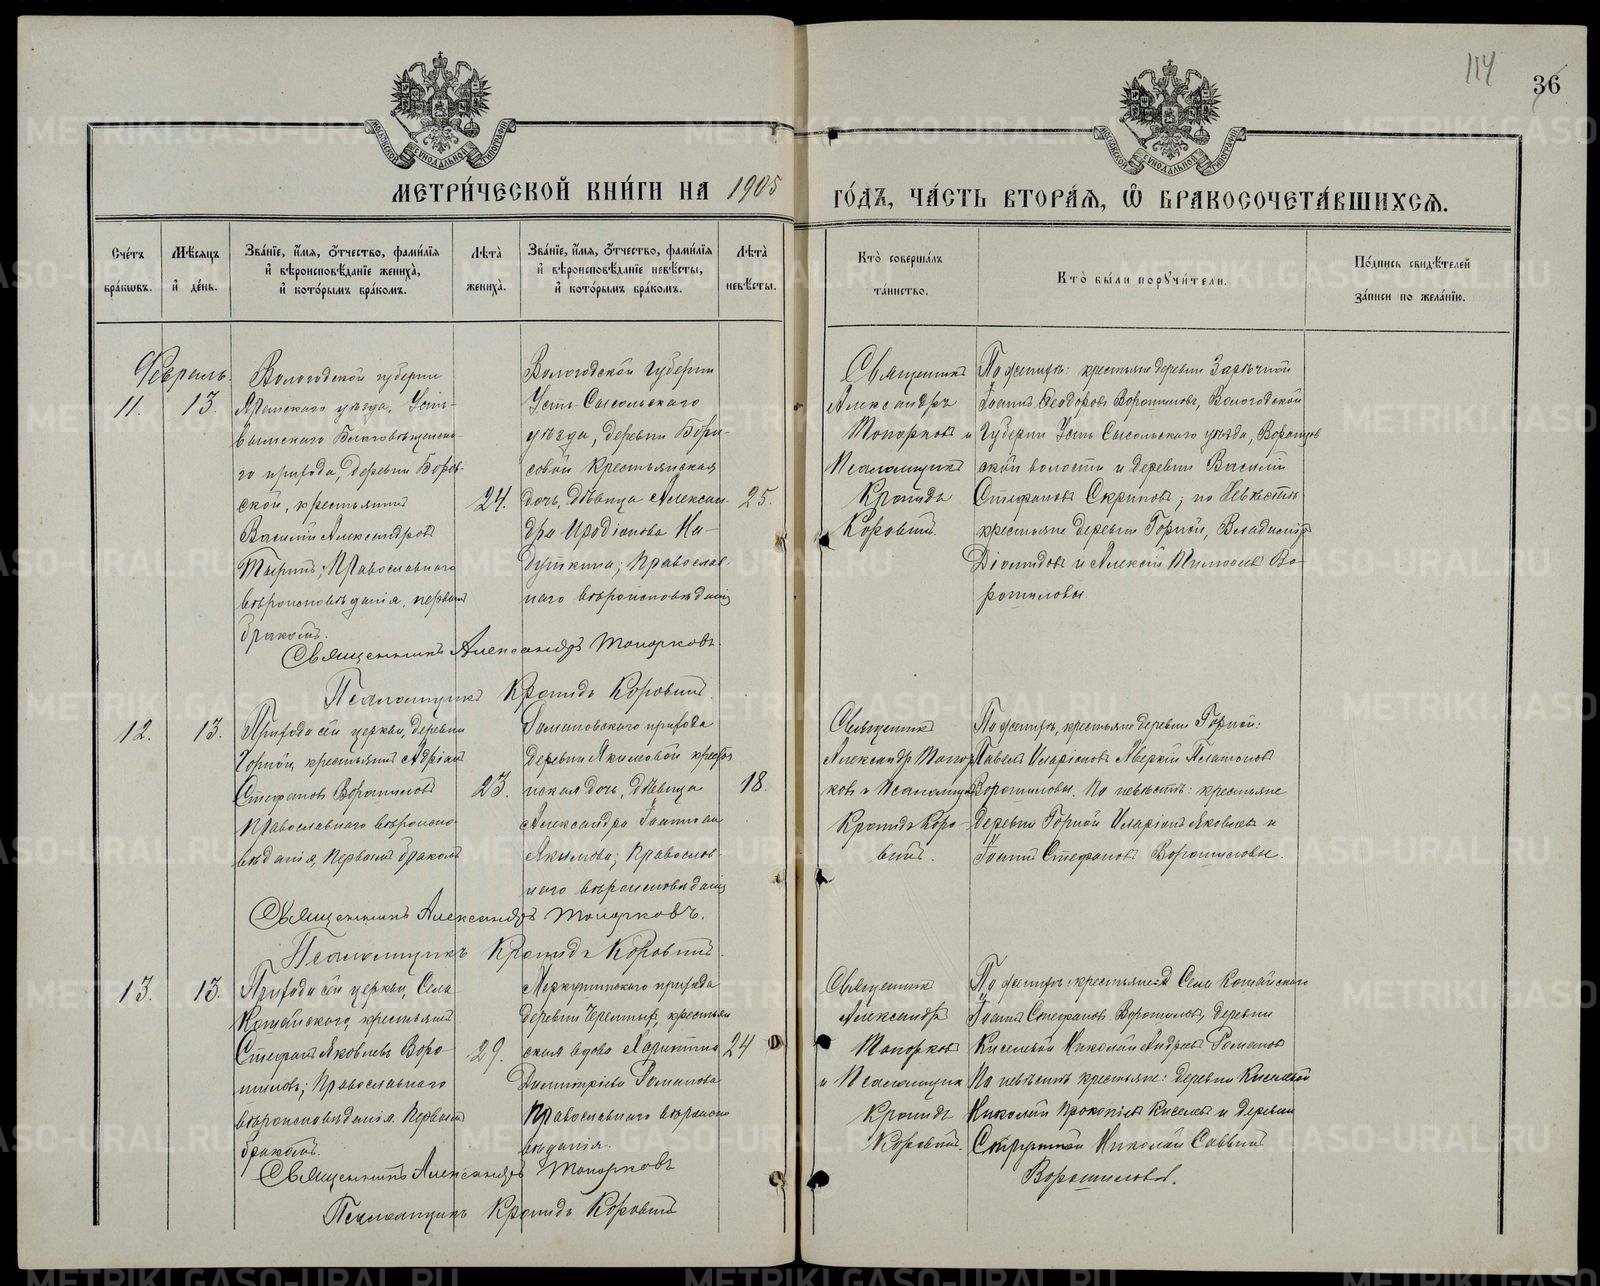 114
36
МЕТРИ́ЧЕСКОЙ КНИ́ГИ НА 1905
ГО́ДЪ, ЧА́СТЬ ВТОРА́Я, Ѡ҆ БРАКОСОЧЕТА́ВШИХСЯ.
Сче́тъ бра́ковъ.
Мѣ́сяцъ и҆ де́нь.
Зва́нїе, и҆́мя, ѻ҆́тчество, фами́лїя
и҆ вѣроисповѣ́данїе жениха̀,
и҆ кото́рымъ бра́комъ.
Лѣ́та̀ жениха̀.
Зва́нїе, и҆́мя, ѻ҆́тчество, фами́лїя
и҆ вѣроисповѣ́данїе невѣ́сты,
и҆ кото́рымъ бра́комъ.
Лѣ́та̀ невѣ́сты.
Кто̀ соверша́лъ
та́инство.
Кто̀ бы́ли порꙋчи́тели.
По́дпись свидѣ́телей
за́писи по жела́нїю.
Февраль.
11.
13.
Вологодской губерніи
Яренскаго уѣзда, Усть-
вымскаго Благовѣщенска-
го прихода, деревни Боров-
ской, крестьянинъ
Василій Александровъ
Православнаго
вѣроисповѣданія, первымъ
бракомъ.
24.
Вологодской Губерніи
Усть-Сысольскаго
уѣзда, деревни Бори-
совой Крестьянская
дочь, дѣвица Алексан-
дра Иродіонова Ка-
Православ-
наго вѣроисповѣданія
25.
Священникъ
Александръ
Топорковъ и
Псаломщикъ
Кронидъ
Коровинъ.
По женихѣ: крестьяне деревни Зарѣчной
Іоаннъ Ѳеодоровъ Ворошиловъ, Вологодской
Губерніи Усть Сысольскаго уѣзда,
ской волости и деревни Василій
Стефановъ Скриповъ; по Невѣстѣ
крестьяне деревни Горной, Владиміръ
Діомидовъ и Алексій Тимоѳеевъ Во-
рошиловы.
Священникъ Александръ Топорковъ.
Псаломщикъ Кронидъ Коровинъ.
12.
13.
Прихода сей церкви, деревни
Горной, крестьянинъ Адріанъ
Стефановъ Ворошиловъ
Православнаго вѣроиспо-
вѣданія, Первымъ бракомъ
23.
прихода
деревни Якимовой крестьян
ская дочь, дѣвица
Александра Іоаннова
Якимова; Православ-
наго вѣроисповѣданія
18.
Священникъ
Александръ Топор
ковъ и Псаломщикъ
Кронидъ Коро-
винъ.
По женихѣ, крестьяне деревни Горной:
Павелъ Иларіоновъ Аверкій Платоновъ
Ворошиловы. По невѣстѣ: крестьяне
деревни Горной Иларіонъ Яковлевъ и
Іоаннъ Стефановъ Ворошиловы.
Священникъ Александръ Топорковъ.
Псаломщикъ Кронидъ Коровинъ.
13.
13.
Прихода сей церкви, Села
Кошайскаго, крестьянинъ
Стефанъ Яковлевъ Воро-
шиловъ; Православнаго
вѣроисповѣданія. Первымъ
бракомъ.
29.
Меркушинскаго прихода
деревни крестьян
ская вдова Харитина
Димитріева Романова
Православнаго вѣроиспо
вѣданія.
24
Священникъ
Александръ
Топорковъ
и Псаломщикъ
Кронидъ
Коровинъ.
По женихѣ: крестьяне Села Кошайскаго
Іоаннъ Стефановъ Ворошиловъ, деревни
Киселевой Николай Андреевъ Романовъ
По невѣстѣ крестьяне: деревни Киселевой
Николай Прокопіевъ Киселевъ и деревни
Николай Саввинъ
Ворошиловъ.
Священникъ Александръ Топорковъ
Псаломщикъ Кронидъ Коровинъ
METRIKI.GASO-URAL.RU